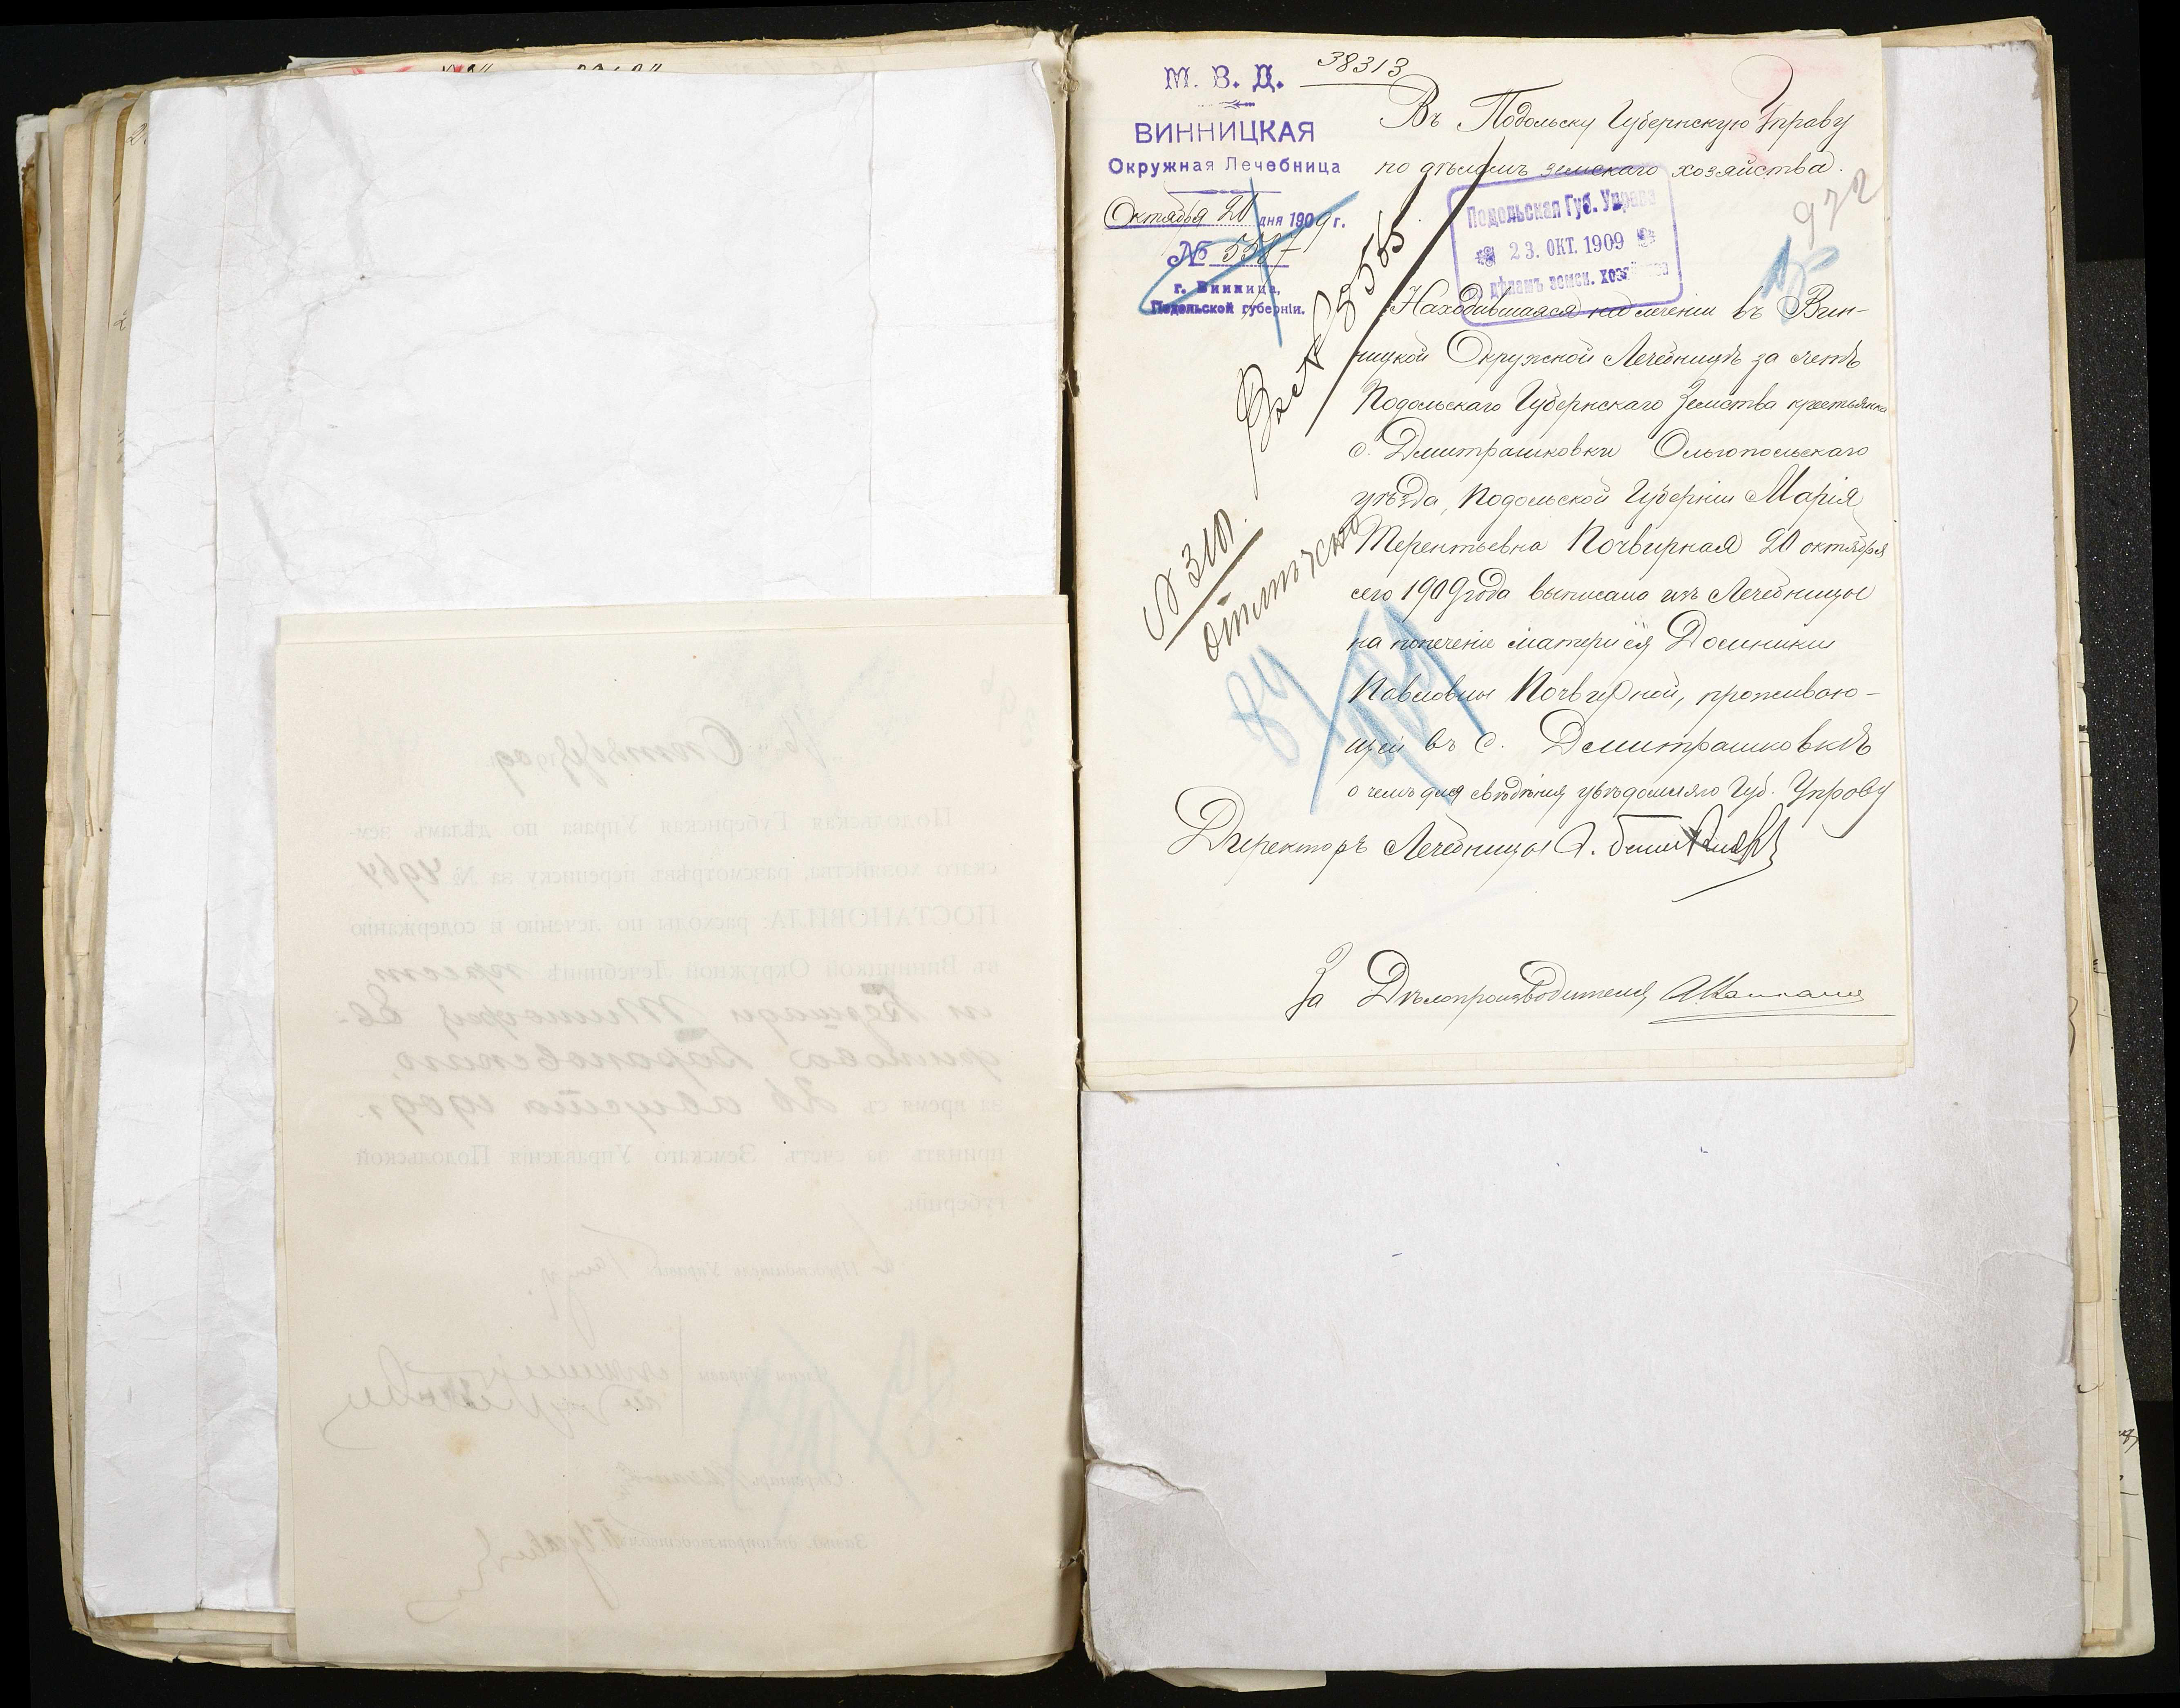 38313
М. В. Д.
ВИННИЦКАЯ
Окружная Лечебница
Октября 20 дня 1909 г.
№ 5587
г. Винница,
Подольской губерніи.
Въ Подольску Губернскую Управу
по дѣламъ земскаго хозяйства.
Подольская Губ. Управа
23. ОКТ. 1909
дѣламъ земск. хозяйства
972
15
№ 310
отмѣчено
Находившаяся на леченіи въ Вин-
ницкой Окружной Лечебницѣ за счетъ
Подольскаго Губернскаго Земства крестьянка
с. Дмитрашковки Ольгопольскаго
уѣзда, Подольской Губерніи Марія
Терентьевна Почвирная 20 октября
сего 1909 года выписана изъ Лечебницы
на попеченіе матери ея Домникіи
Павловны Почвирной, проживаю-
щей въ с. Дмитрашковкѣ
о чемъ для свѣдѣнія увѣдомляю Губ. Управу
Директоръ Лечебницы
За Дѣлопроизводителя
16 Сентября 1909 г.
Подольская Губернская Управа по дѣламъ зем-
скаго хозяйства, разсмотрѣвъ переписку за № 4964
ПОСТАНОВИЛА: расходы по леченію и содержанію
въ Винницкой Окружной Лечебницѣ крест.
за время съ 26 августа 1909 г.
принять за счетъ Земскаго Управленія Подольской
губерніи.
Предсѣдатель Управы
Члены Управы
Секретарь
Завѣд. дѣлопроизводствомъ